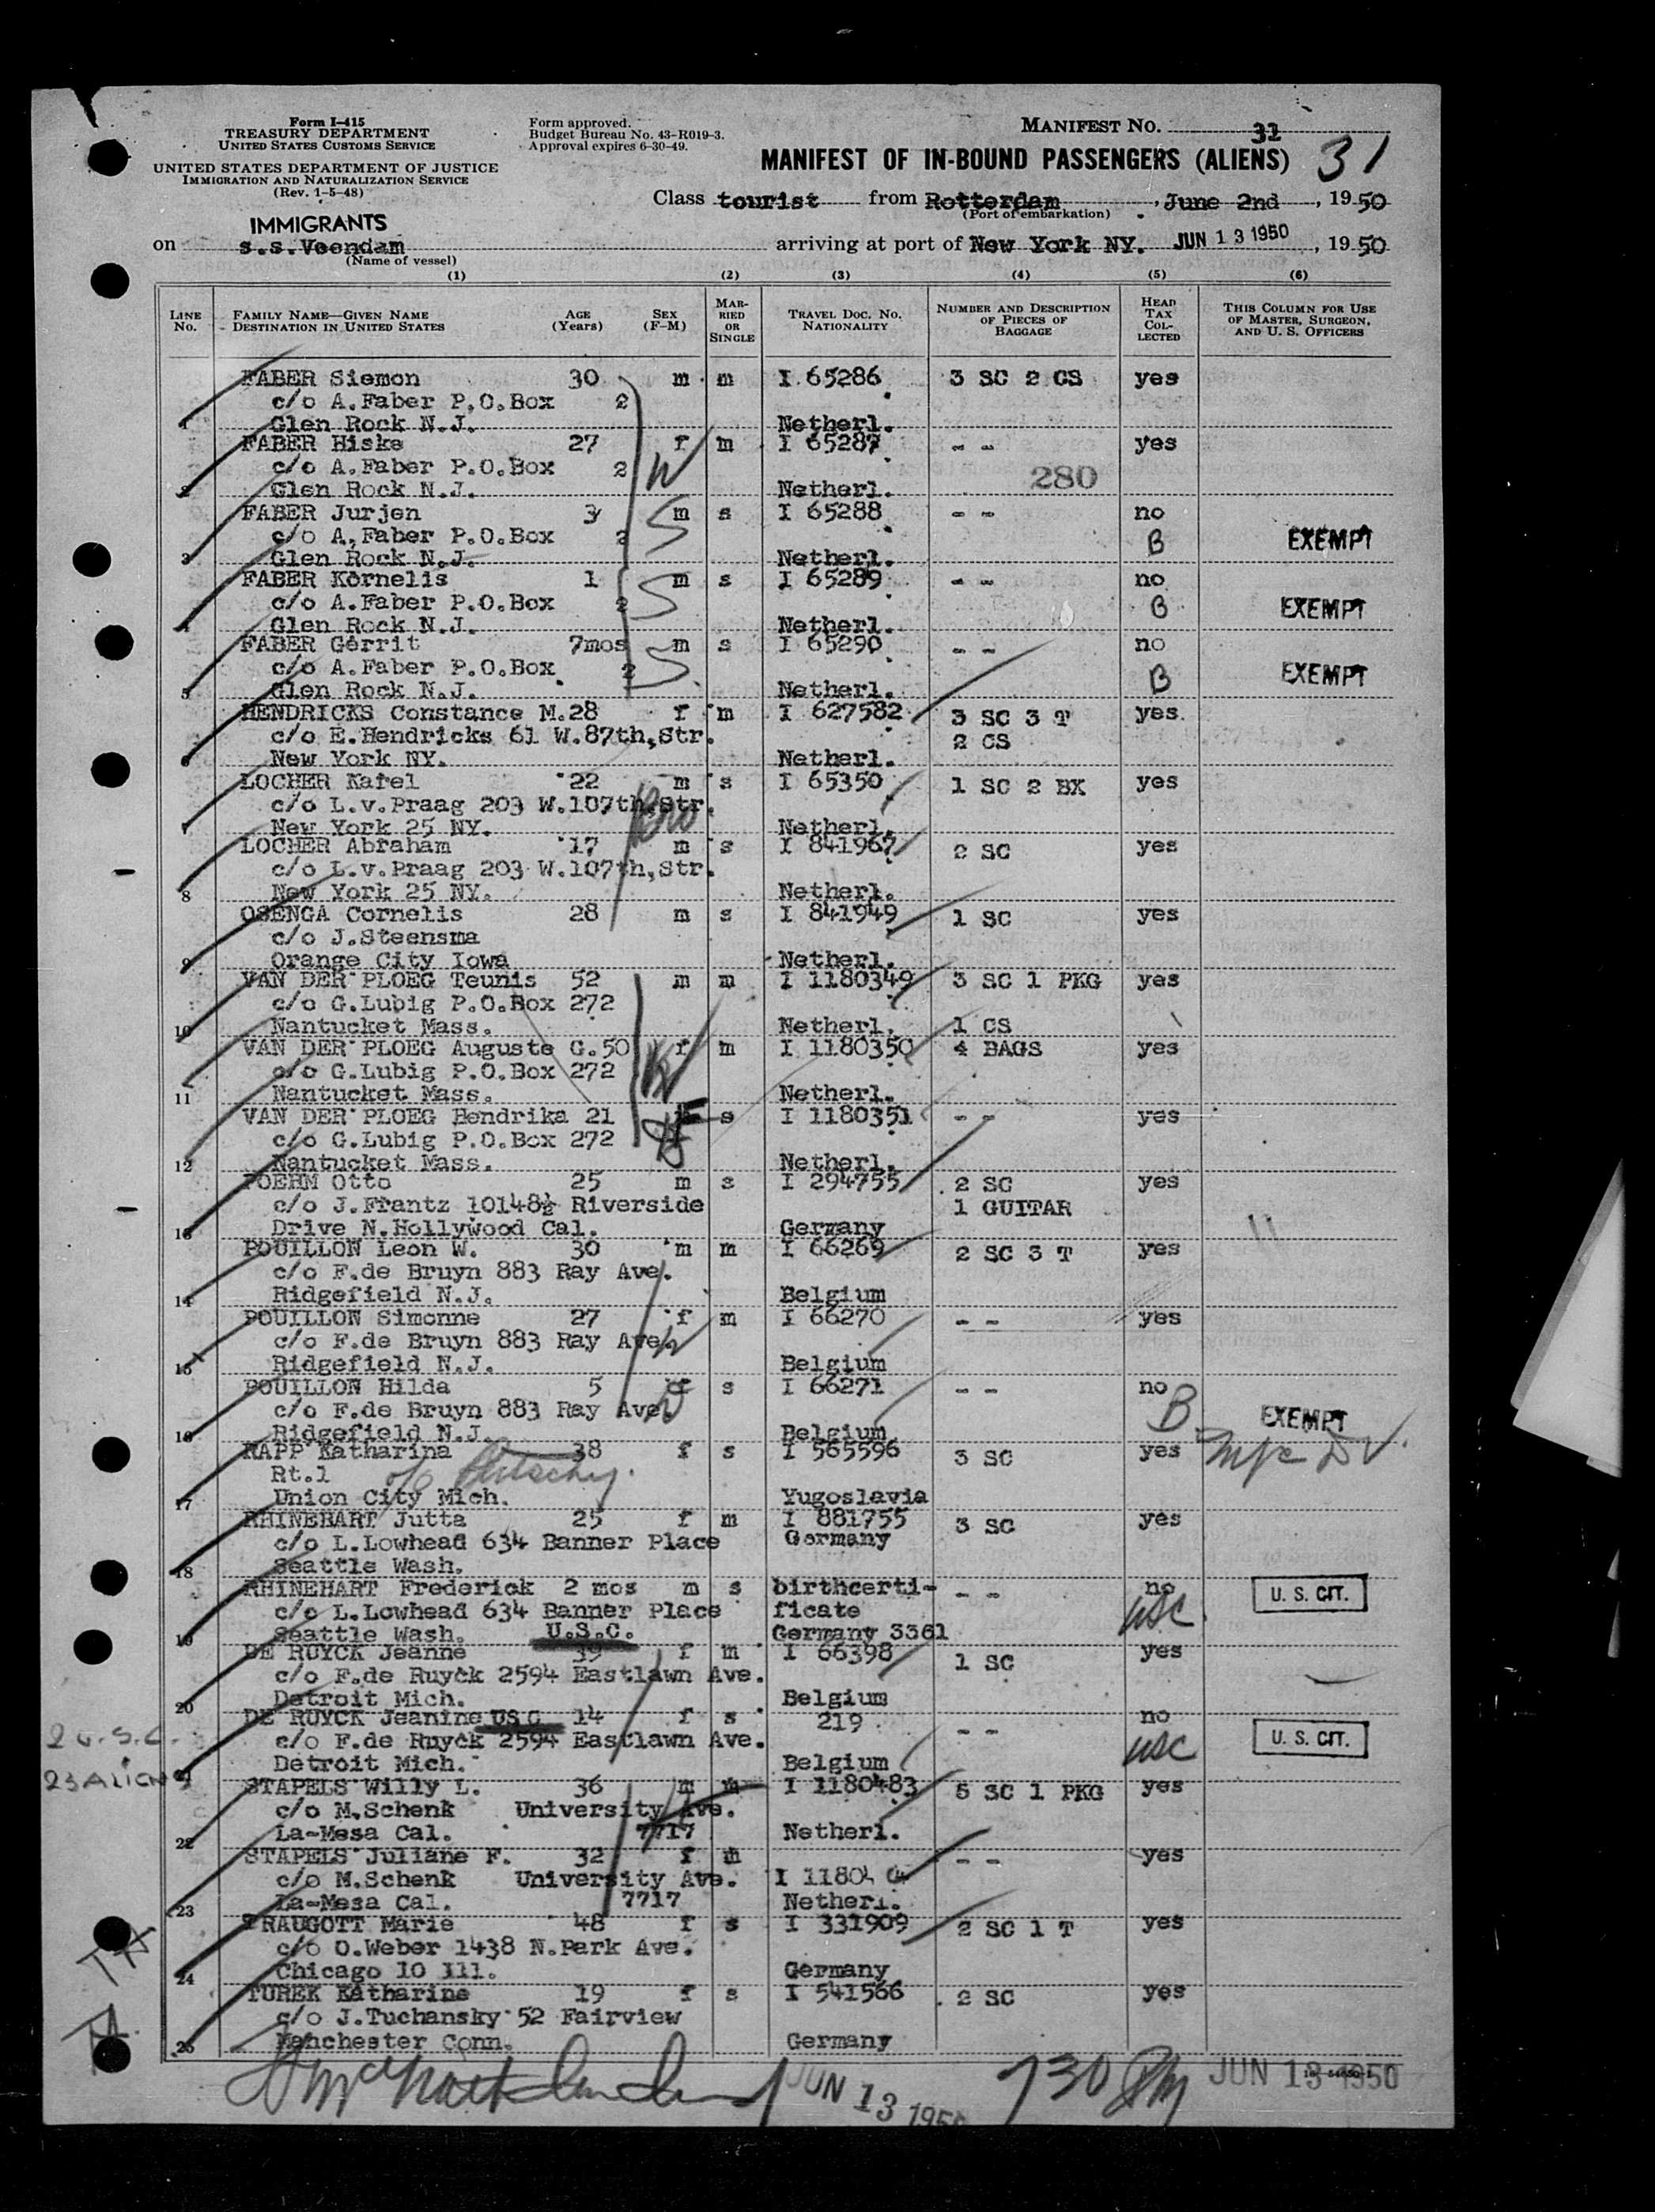 Form I-415
TREASURY DEPARTMENT
UNITED STATES CUSTOMS SERVICE
UNITED STATES DEPARTMENT OF JUSTICE
IMMIGRATION AND NATURALIZATION SERVICE
(Rev. 1-5-48)
Form approved.
Budget Bureau No. 43-R019-3.
Approval expires 6-30-49.
MANIFEST No. 31
MANIFEST OF IN-BOUND PASSENGERS (ALIENS) 31
Class tourist from Rotterdam, June 2nd, 1950
(Port of embarkation)
IMMIGRANTS
on s.s.Veendam arriving at port of New York NY. JUN 13 1950, 1950
(Name of vessel)
(1) (2) (3) (4) (5) (6)
LINE No. FAMILY NAME—GIVEN NAME DESTINATION IN UNITED STATES AGE (Years) SEX (F-M) MARRIED OR SINGLE TRAVEL DOC. NO. NATIONALITY NUMBER AND DESCRIPTION OF PIECES OF BAGGAGE HEAD TAX COLLECTED THIS COLUMN FOR USE OF MASTER, SURGEON, AND U. S. OFFICERS
FABER Siemon 30 m m I 65286 3 SC 2 CS yes
c/o A.Faber P.O.Box 2
1 Glen Rock N.J. Netherl.
FABER Hiske 27 f m I 65287 - - yes
c/o A.Faber P.O.Box 2 W 280
2 Glen Rock N.J. Netherl.
FABER Jurjen 3 m s I 65288 - - no
c/o A.Faber P.O.Box 2 S B EXEMPT
3 Glen Rock N.J. Netherl.
FABER Kornelis 1 m s I 65289 - - no
c/o A.Faber P.O.Box 2 S B EXEMPT
4 Glen Rock N.J. Netherl.
FABER Gerrit 7mos m s I 65290 - - no
c/o A.Faber P.O.Box 2 S B EXEMPT
5 Glen Rock N.J. Netherl.
HENDRICKS Constance M. 28 f m I 627582 3 SC 3 T yes
c/o E.Hendricks 61 W.87th,Str. 2 CS
6 New York NY. Netherl.
LOCHER Karel 22 m s I 65350 1 SC 2 BX yes
c/o L.v.Praag 203 W.107th,Str.
7 New York 25 NY. Netherl.
LOCHER Abraham 17 m s I 841967 2 SC yes
c/o L.v.Praag 203 W.107th,Str.
8 New York 25 NY. Netherl.
OSENGA Cornelis 28 m s I 841949 1 SC yes
c/o J.Steensma
9 Orange City Iowa Netherl.
VAN DER PLOEG Teunis 52 m m I 1180349 3 SC 1 PKG yes
c/o G.Lubig P.O.Box 272
10 Nantucket Mass. Netherl. 1 CS
VAN DER PLOEG Auguste G. 50 f m I 1180350 4 BAGS yes
c/o G.Lubig P.O.Box 272 W
11 Nantucket Mass. Netherl.
VAN DER PLOEG Hendrika 21 F s I 1180351 - - yes
c/o G.Lubig P.O.Box 272
12 Nantucket Mass. Netherl.
POEHM Otto 25 m s I 294755 2 SC yes
c/o J.Frantz 10148½ Riverside 1 GUITAR
13 Drive N.Hollywood Cal. Germany 11
POUILLON Leon W. 30 m m I 66269 2 SC 3 T yes
c/o F.de Bruyn 883 Ray Ave.
14 Ridgefield N.J. Belgium
POUILLON Simonne 27 f m I 66270 - - yes
c/o F.de Bruyn 883 Ray Ave.
15 Ridgefield N.J. Belgium
POUILLON Hilda 5 f s I 66271 - - no
c/o F.de Bruyn 883 Ray Ave. B EXEMPT
16 Ridgefield N.J. Belgium
RAPP Katharina 38 f s I 565596 3 SC yes
Rt.1
17 Union City Mich. Yugoslavia
RHINEHART Jutta 25 f m I 881755 3 SC yes
c/o L.Lowhead 634 Banner Place Germany
18 Seattle Wash.
RHINEHART Frederick 2 mos m s birthcerti- - - no U. S. CIT.
c/o L.Lowhead 634 Banner Place ficate usc
19 Seattle Wash. U.S.C. Germany 3361
DE RUYCK Jeanne 39 f m I 66398 1 SC yes
c/o F.de Ruyck 2594 Eastlawn Ave.
20 Detroit Mich. Belgium
DE RUYCK Jeanine USC 14 f s 219 - - no
2 U.S.C. c/o F.de Ruyck 2594 Eastlawn Ave. usc U. S. CIT.
23 ALIENS Detroit Mich. Belgium
STAPELS Willy L. 36 m m I 1180483 5 SC 1 PKG yes
c/o M.Schenk University Ave.
22 La-Mesa Cal. 7717 Netherl.
STAPELS Juliane F. 32 f m - - yes
c/o M.Schenk University Ave. I 1180
23 La-Mesa Cal. 7717 Netherl.
TRAUGOTT Marie 48 f s I 331909 2 SC 1 T yes
c/o O.Weber 1438 N.Park Ave.
24 Chicago 10 Ill. Germany
TUREK Katharine 19 f s I 541566 2 SC yes
c/o J.Tuchansky 52 Fairview
25 Manchester Conn. Germany
JUN 13 1950 730 Pm JUN 13 1950